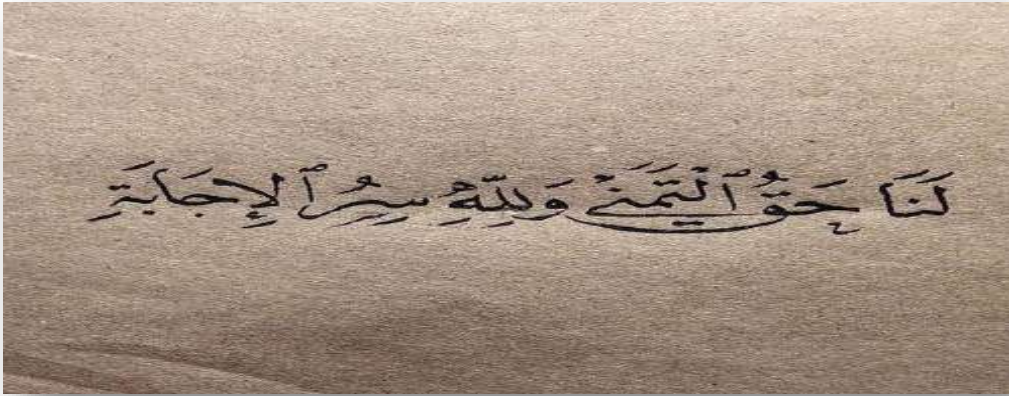 لَنَا حَقُّ ٱلْتَمَنِّي وَلِلّٰهِ سِرُّ ٱلإِجَابَةِ